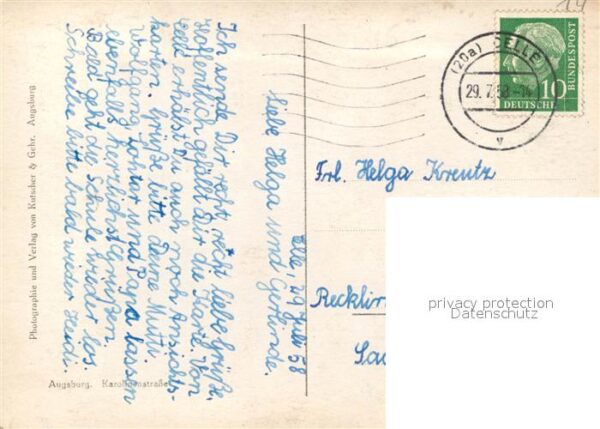 Celle, 29. Juli 58
Liebe Helga und Gerlinde.
Ich sende Dir recht, recht liebe Grüße.
Hoffentlich gefällt Dir die Karte. Von
erhälst Du auch noch Ansichts-
karten. Grüße bitte Deine Mutti.
Wolfgang, Lothar und Papa lassen
ebenfalls herzlichst grüßen.
Bald geht die Schule wieder los.
Schreibe bitte bald wieder Heidi.
Photographie und Verlag von Kutscher & Gehr, Augsburg
Augsburg. Karolinenstraße
(20a) CELLE
29. 7. 58
v
DEUTSCHE
BUNDESPOST
10
Frl. Helga Kreutz
Recklin
privacy protection
Datenschutz